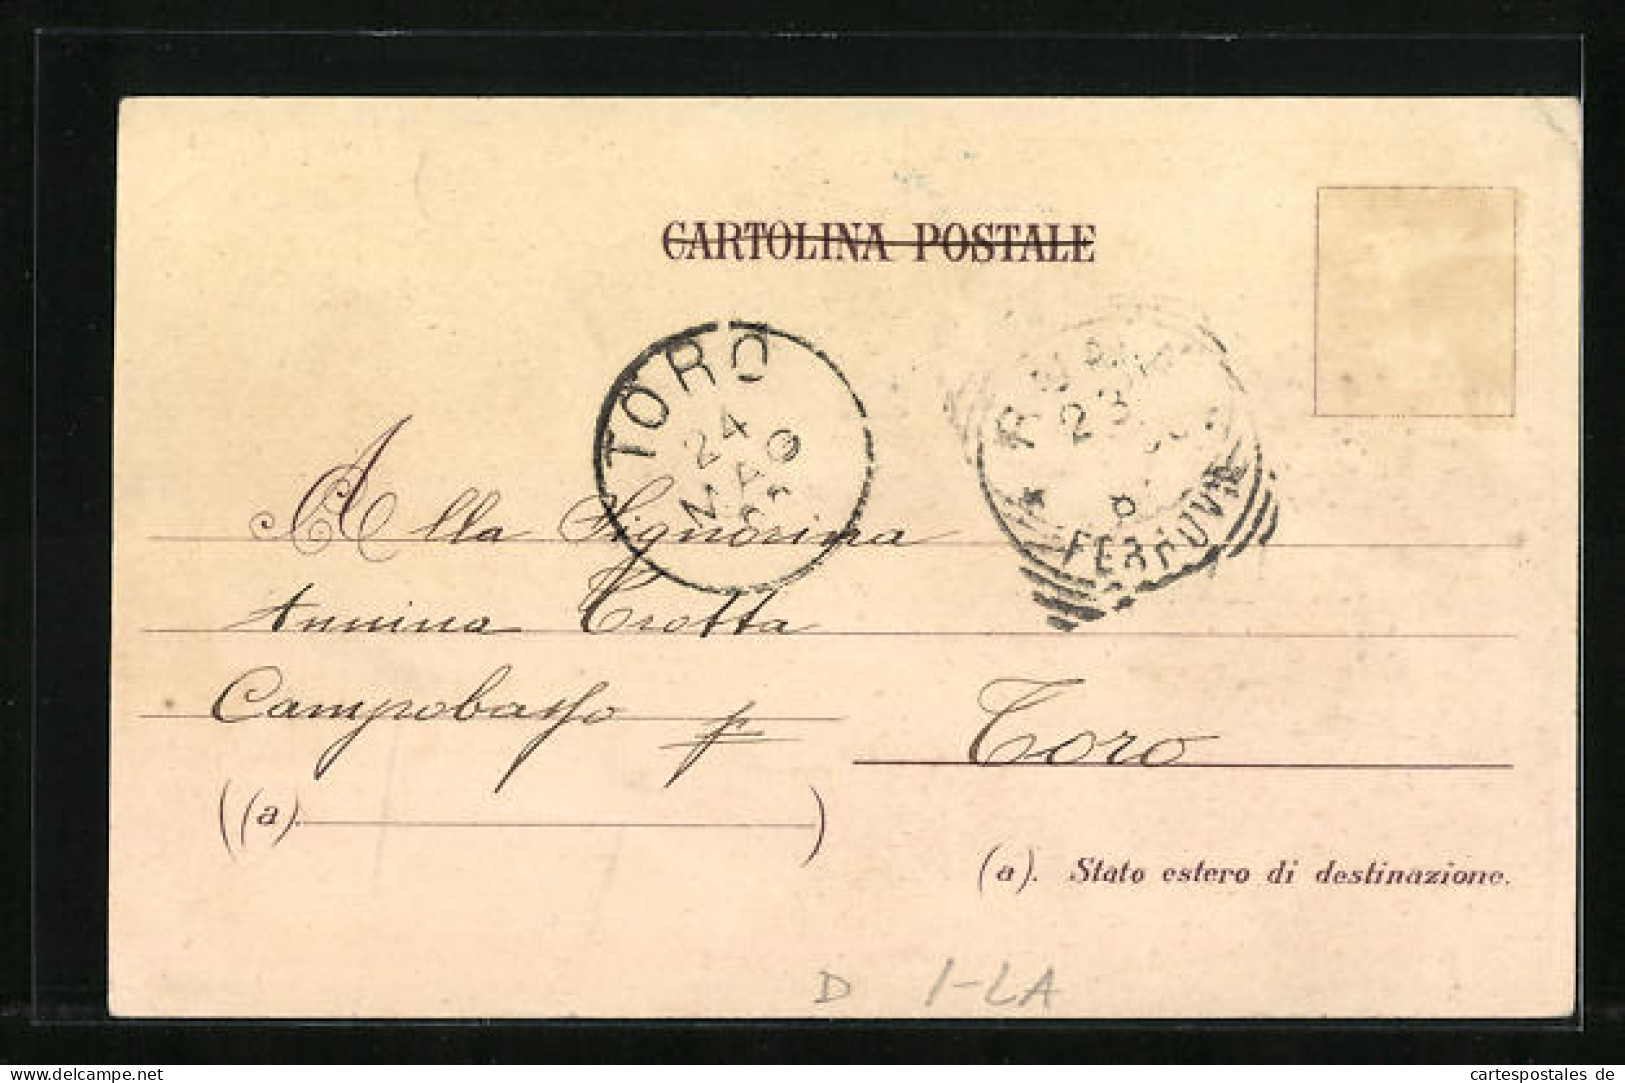 CARTOLINA POSTALE
TORO
24
MAG
23
FERROVIA
Alla Signorina
Annina Trotta
Campobasso
Toro
((a). )
(a). Stato estero di destinazione.
D I-LA
www.delcampe.net
cartespostales de